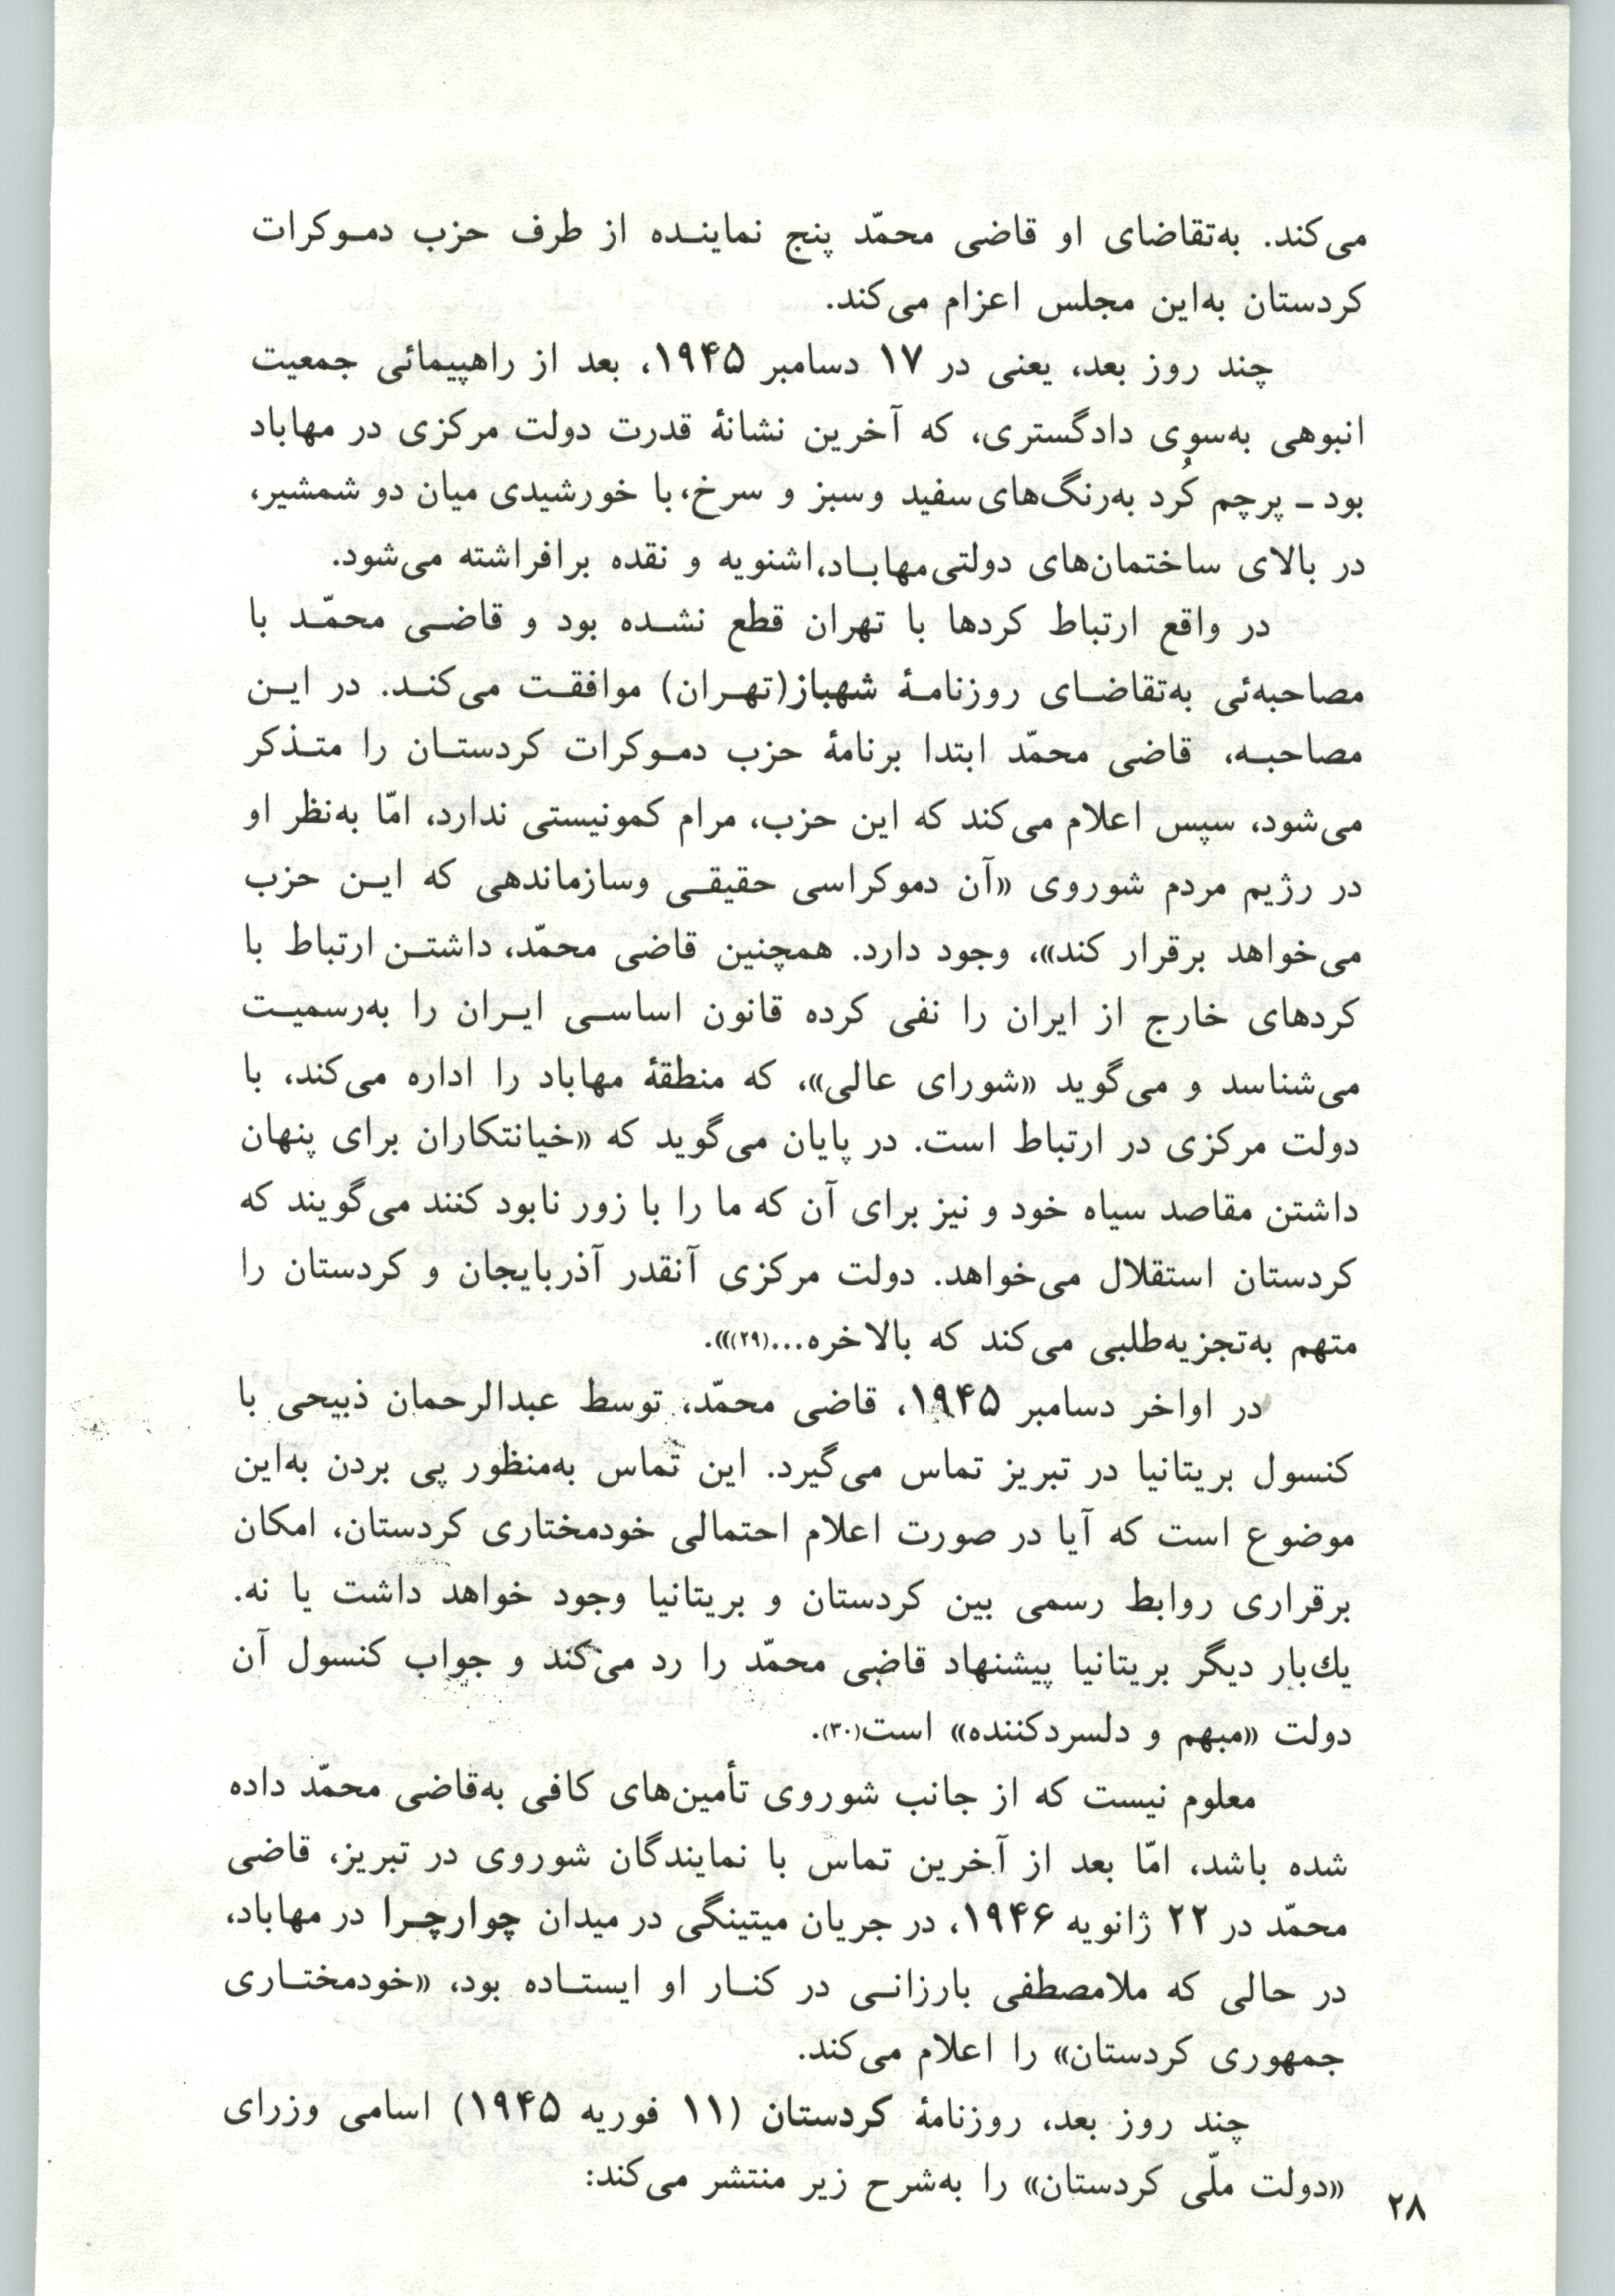 می‌کند. به‌تقاضای او قاضی محمّد پنج نماینده از طرف حزب دموکرات
کردستان به‌این مجلس اعزام می‌کند.
چند روز بعد، یعنی در ۱۷ دسامبر ۱۹۴۵، بعد از راهپیمائی جمعیت
انبوهی به‌سوی دادگستری، که آخرین نشانهٔ قدرت دولت مرکزی در مهاباد
بود ـ پرچم کُرد به‌رنگ‌های سفید وسبز و سرخ، با خورشیدی میان دو شمشیر،
در بالای ساختمان‌های دولتی مهاباد، اشنویه و نقده برافراشته می‌شود.
در واقع ارتباط کردها با تهران قطع نشده بود و قاضی محمّد با
مصاحبه‌ئی به‌تقاضای روزنامهٔ شهباز(تهران) موافقت می‌کند. در این
مصاحبه، قاضی محمّد ابتدا برنامهٔ حزب دموکرات کردستان را متذکر
می‌شود، سپس اعلام می‌کند که این حزب، مرام کمونیستی ندارد، امّا به‌نظر او
در رژیم مردم شوروی «آن دموکراسی حقیقی وسازماندهی که این حزب
می‌خواهد برقرار کند»، وجود دارد. همچنین قاضی محمّد، داشتن ارتباط با
کردهای خارج از ایران را نفی کرده قانون اساسی ایران را به‌رسمیت
می‌شناسد و می‌گوید «شورای عالی»، که منطقهٔ مهاباد را اداره می‌کند، با
دولت مرکزی در ارتباط است. در پایان می‌گوید که «خیانتکاران برای پنهان
داشتن مقاصد سیاه خود و نیز برای آن که ما را با زور نابود کنند می‌گویند که
کردستان استقلال می‌خواهد. دولت مرکزی آنقدر آذربایجان و کردستان را
متهم به‌تجزیه‌طلبی می‌کند که بالاخره...(۲۹)».
در اواخر دسامبر ۱۹۴۵، قاضی محمّد، توسط عبدالرحمان ذبیحی با
کنسول بریتانیا در تبریز تماس می‌گیرد. این تماس به‌منظور پی بردن به‌این
موضوع است که آیا در صورت اعلام احتمالی خودمختاری کردستان، امکان
برقراری روابط رسمی بین کردستان و بریتانیا وجود خواهد داشت یا نه.
یك‌بار دیگر بریتانیا پیشنهاد قاضی محمّد را رد می‌کند و جواب کنسول آن
دولت «مبهم و دلسردکننده» است(۳۰).
معلوم نیست که از جانب شوروی تأمین‌های کافی به‌قاضی محمّد داده
شده باشد، امّا بعد از آخرین تماس با نمایندگان شوروی در تبریز، قاضی
محمّد در ۲۲ ژانویه ۱۹۴۶، در جریان میتینگی در میدان چوارچرا در مهاباد،
در حالی که ملامصطفی بارزانی در کنار او ایستاده بود، «خودمختاری
جمهوری کردستان» را اعلام می‌کند.
چند روز بعد، روزنامهٔ کردستان (۱۱ فوریه ۱۹۴۵) اسامی وزرای
«دولت ملّی کردستان» را به‌شرح زیر منتشر می‌کند:
۲۸